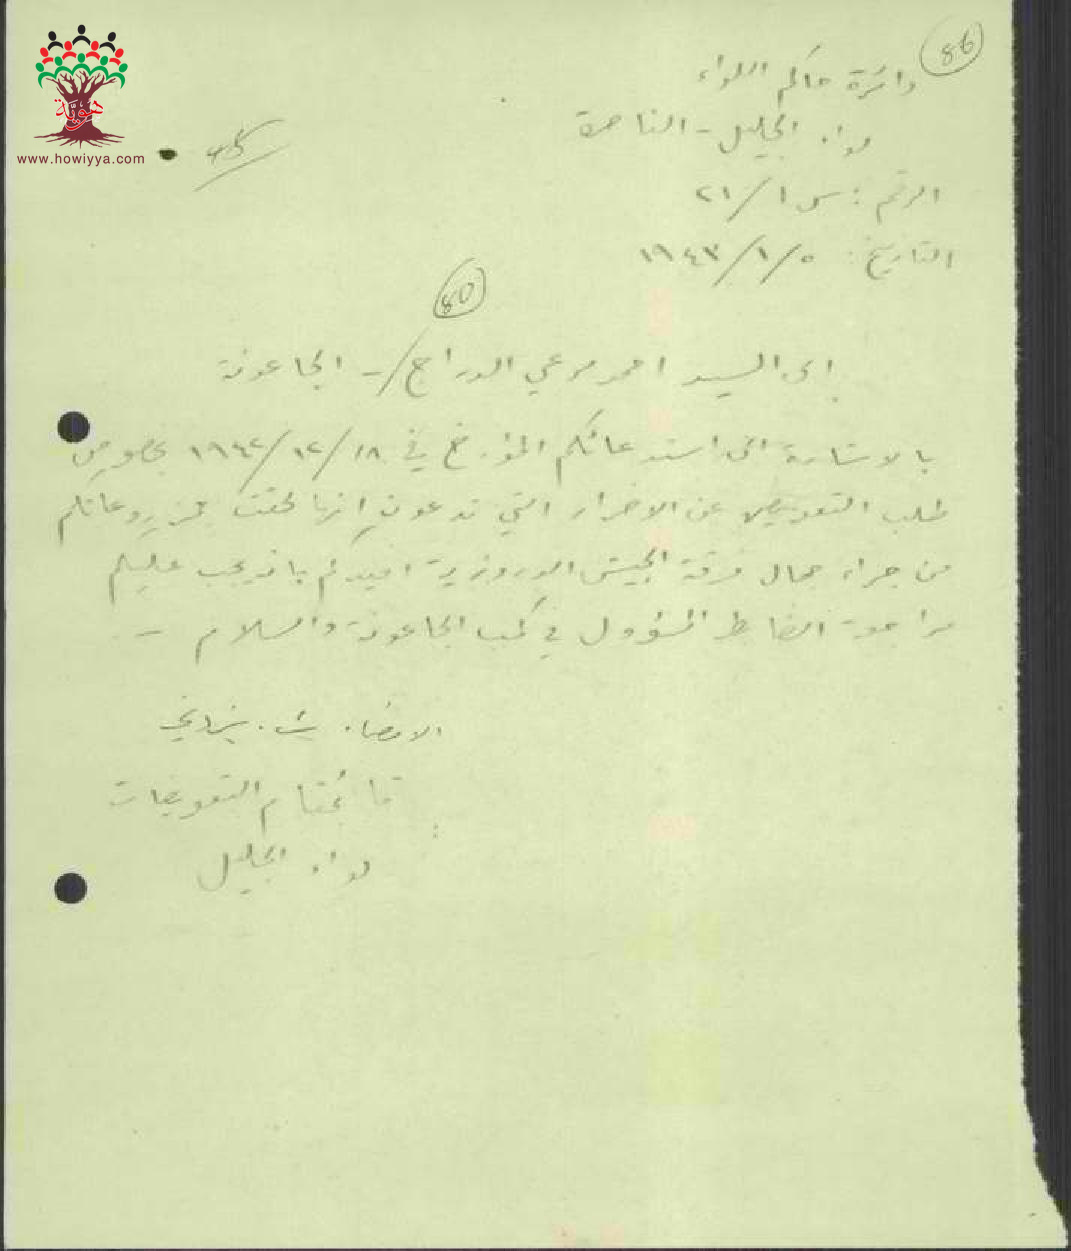 86
دائرة حاكم اللواء
لواء الجليل - الناصرة
الرقم : س ١ / ٢١
التاريخ : ٥ / ١ / ١٩٤٣
80
الى السيد احمد مرعي الدراج / - الجاعونة
بالاشارة الى استدعائكم المؤرخ في ١٨ / ١٢ / ١٩٤٢ بخصوص
طلب التعويض عن الاضرار التي تدعون انها لحقت بمزروعاتكم
من جراء جمال فرقة الجيش الدروزية افيدكم بانه يجب عليكم
مراجعة الضابط المسؤول في كمب الجاعونة والسلام -
الامضاء ش.
قائمقام التعويضات
لواء الجليل
www.howiyya.com